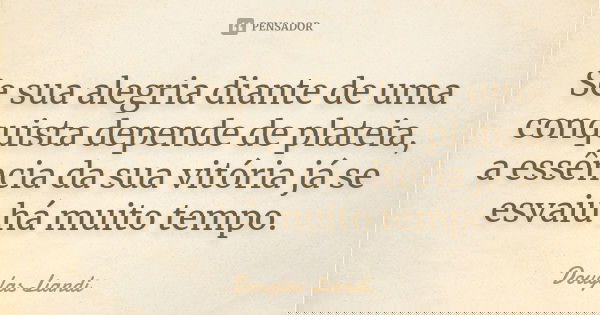 PENSADOR
Se sua alegria diante de uma
conquista depende de plateia,
a essência da sua vitória já se
esvaiu há muito tempo.
Douglas Liandi